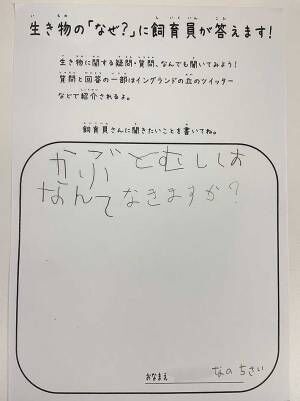 生き物の「なぜ?」に飼育員が答えます!
生き物に関する疑問・質問、なんでも聞いてみよう!
質問と回答の一部はイングランドの丘のツイッター
などで紹介されるよ。
飼育員さんに聞きたいことを書いてね。
かぶとむしは
なんてなきますか?
おなまえ
なの ちさい